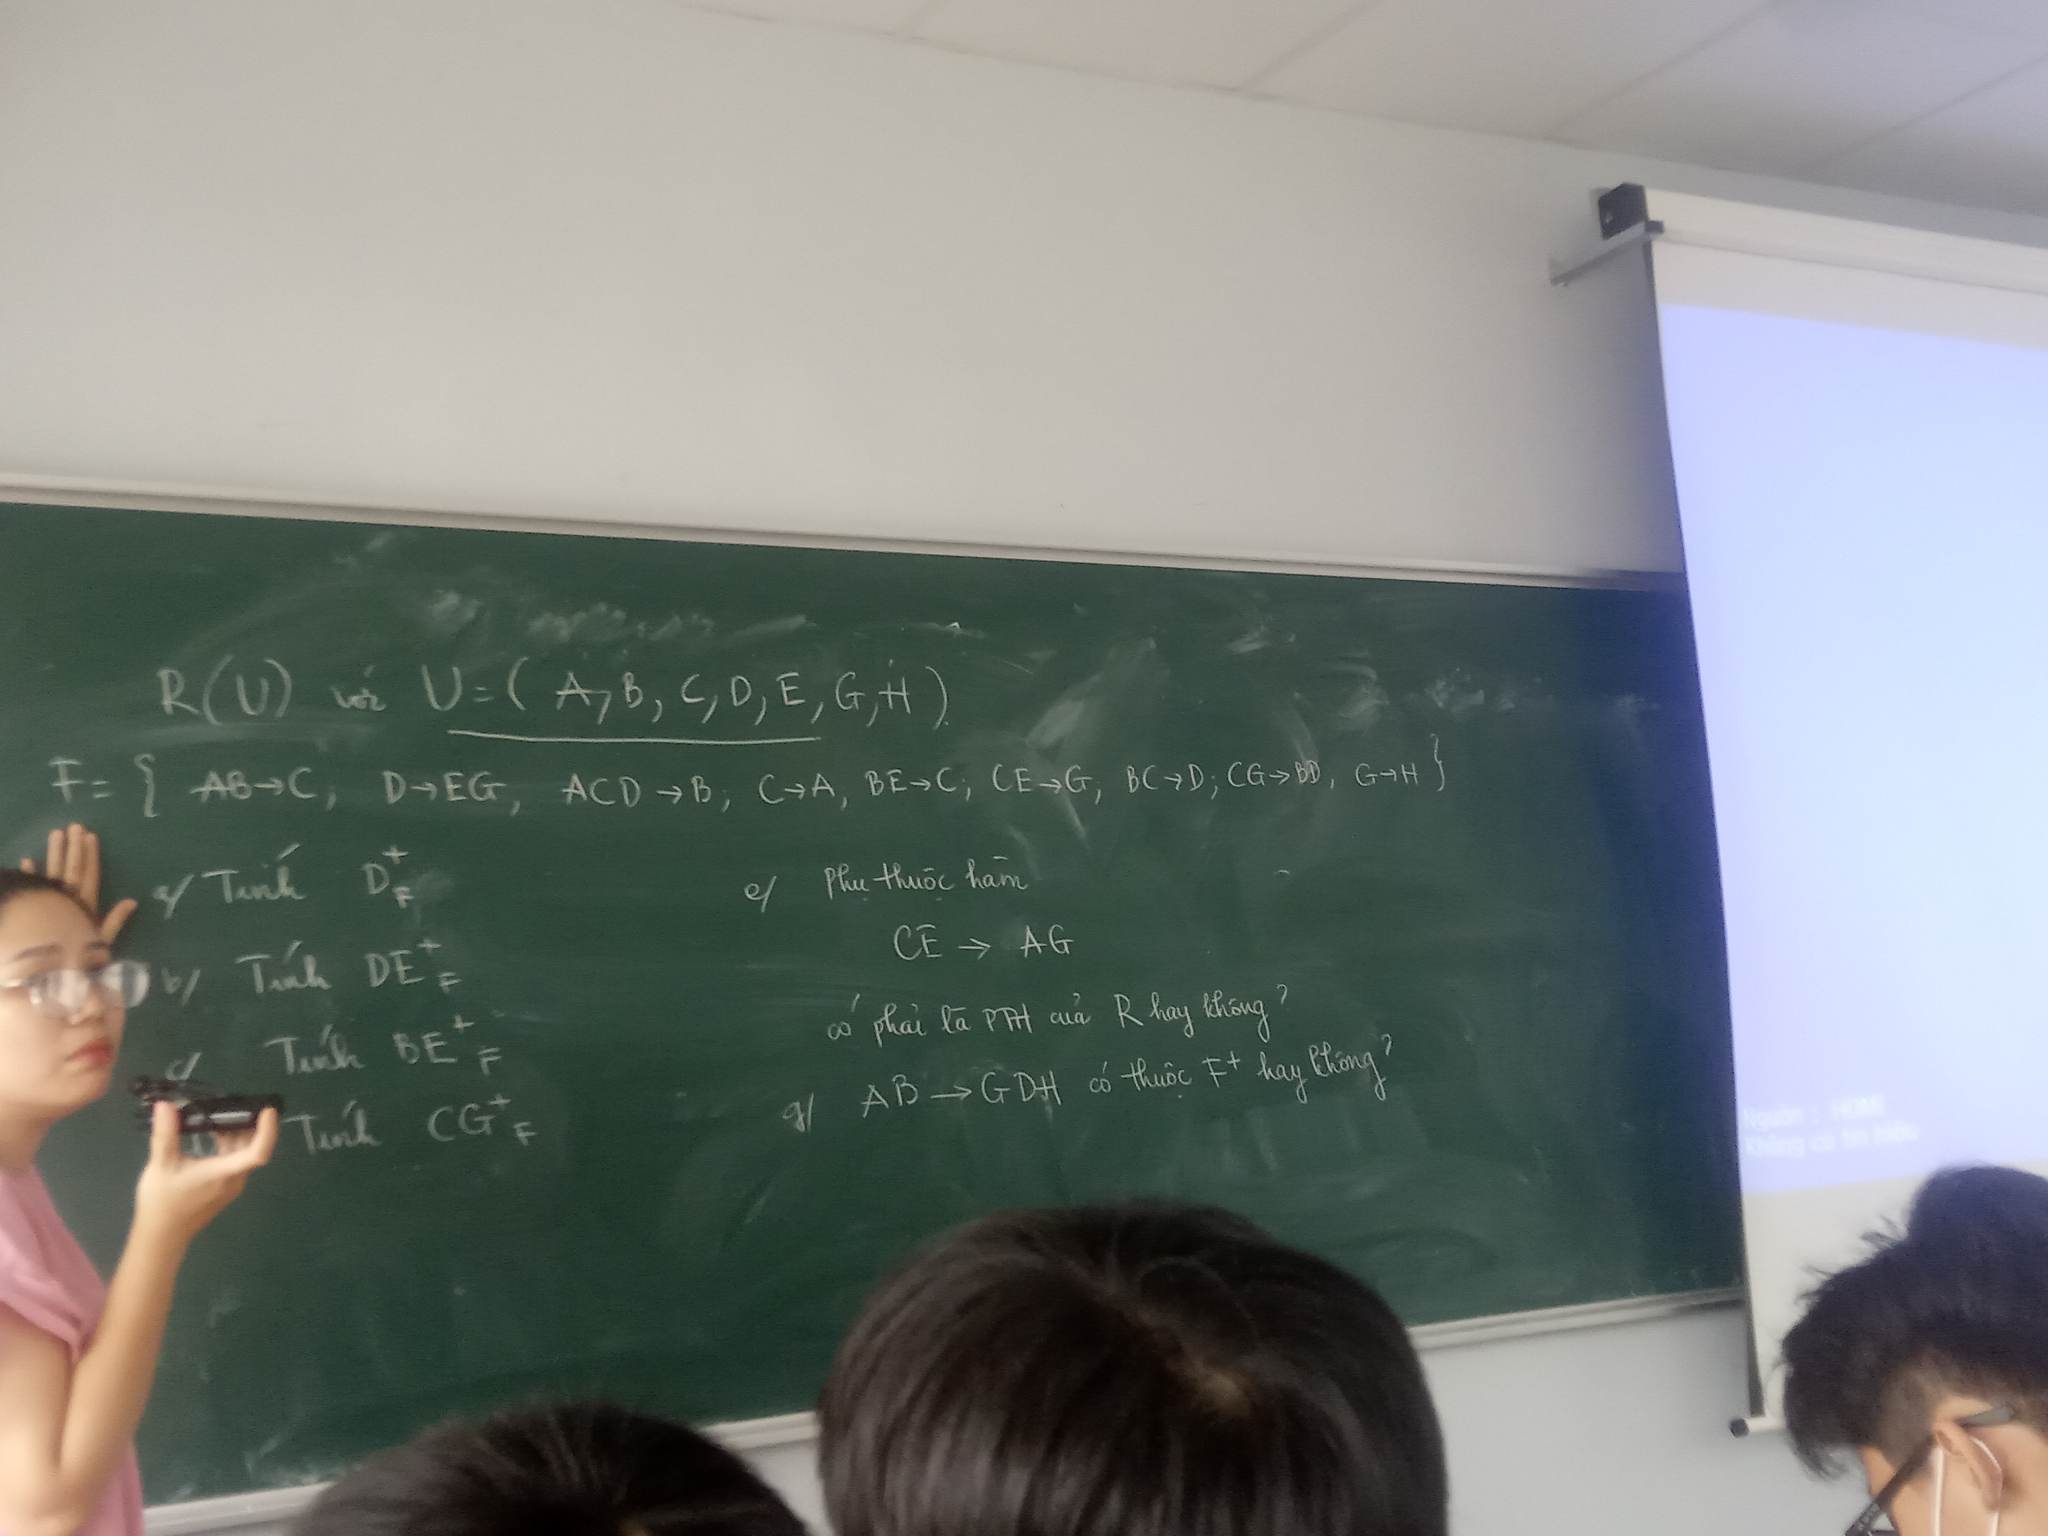 R(U) với U = ( A, B, C, D, E, G, H ).
F = { AB → C; D → EG, ACD → B; C → A, BE → C; CE → G, BC → D; CG → BD, G → H }
a/ Tính D⁺F
b/ Tính DE⁺F
c/ Tính BE⁺F
Tính CG⁺F
e/ Phụ thuộc hàm
CE → AG
có phải là PTH của R hay không?
g/ AB → GDH có thuộc F⁺ hay không?
HDMI
Không có tín hiệu